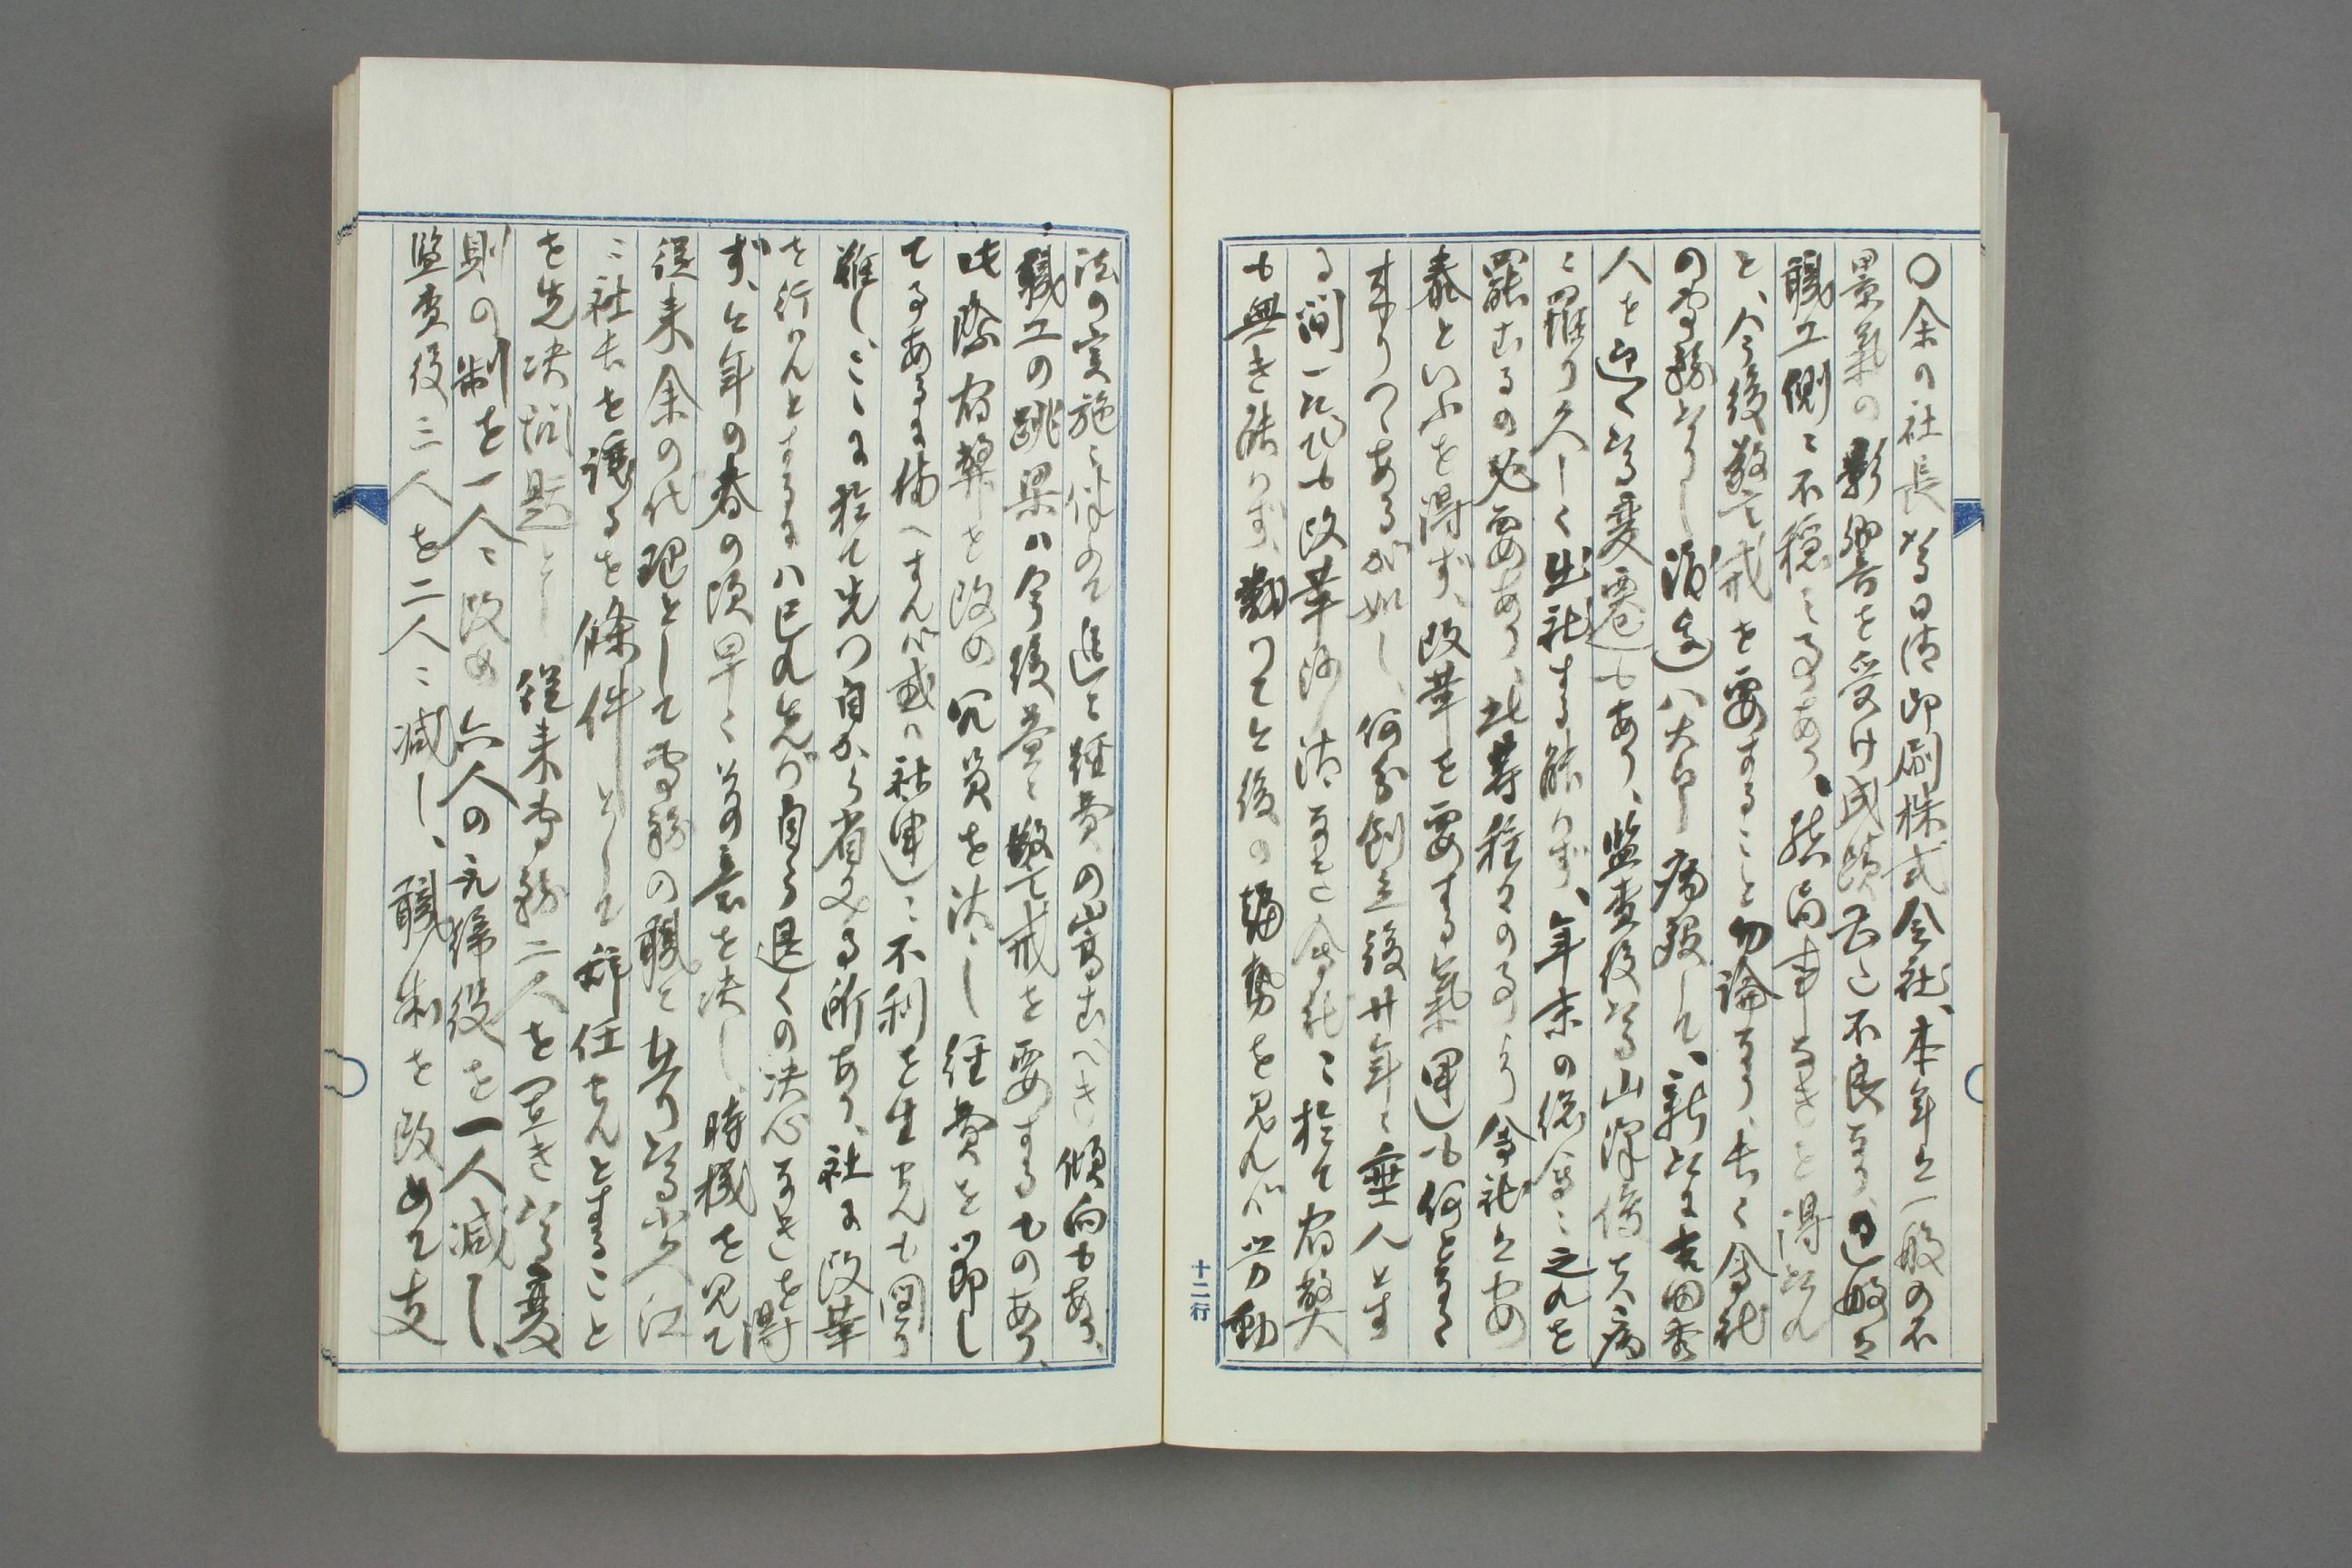 〇余の社長たる日清印刷株式会社、本年は一般の不
景氣の影響を受け成蹟亦不良なり、近時は
職工側に不穏の事あり、然尚事なきを得たれ
と、今後警戒を要すること勿論なり、長く会社
の専務たりし は大中病歿して、新たに吉田秀
人を迎へたる変遷もあり、監査役たる山澤 夫病
に罹り久しく出社する能はず、年末の総会に之れを
罷むるの必要あり、此等種々の事より会社は安
泰といふを得ず、改革を要する氣運も何となく
来りつゝあるが如し、何分創立後廿年に垂んとす
る間一たびも改革 なき会社に於て宿弊
も無き能はず、翻つて今後の趨勢を見れバ労動
法の実施に伴ふて追々経費の嵩むべき傾向もあり、
職工の跳梁ハ今後益々警戒を要するものあり、
此際宿弊を改め冗員を汰し経費を節し
て事あるに備へずんば或は社運に不利を生ぜんも図り
難し、こゝに於て先つ自から省みる所あり、社に改革
を行はんとするにハ已れ先づ自ら退くの決心なきを得
ず、今年の春の頃早く其の意を決し、時機を見て
従来余の代理として専務の職に在りたる 江
に社長を譲るを條件として辞任せんとすること
を先決問題とし 従来専務二人を置きたる変
則の制を一人に改め 六人の取締役を一人減し、
監査役三人を二人に減し、職制を改めて支
十二行